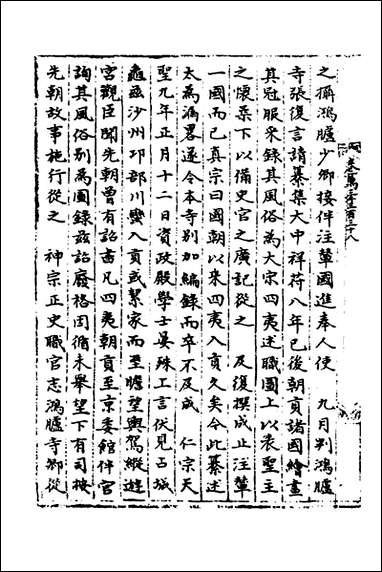 之攝鴻臚少卿接伴注輦國進奉人使　九月判鴻臚
寺張復言請纂集大中祥符八年已後朝貢諸國繪畫
其冠服采錄其風俗為大宋四夷述職圖上以表聖主
之懷柔下以備史官之廣記從之　及復撰成止注輦
一國而已真宗曰國朝以來四夷入貢久矣今此纂述
太為漏畧遂令本寺別加編錄而卒不及成　仁宗天
聖九年正月十二日資政殿學士晏殊上言伏見占城
龜茲沙州邛部川蠻入貢或挈家而至驢望輿駕縱遊
宮觀臣聞先朝曾有詔書凡四夷朝貢至京委館伴官
詢其風俗別為圖錄茲詔廢格因循未舉望下有司按
先朝故事施行從之　神宗正史職官志鴻臚寺卿從